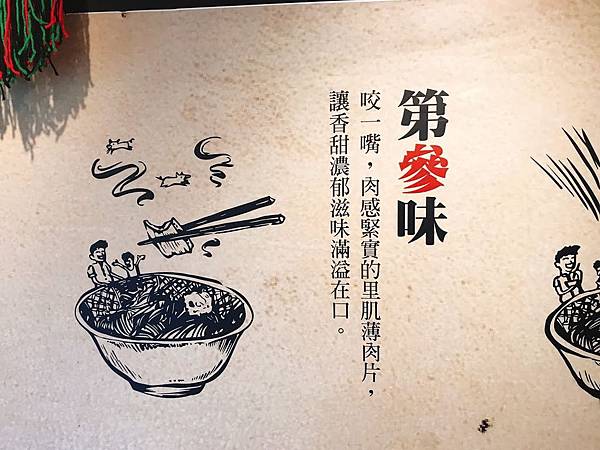 第參味
咬一嘴，肉感緊實的里肌薄肉片，
讓香甜濃郁滋味滿溢在口。